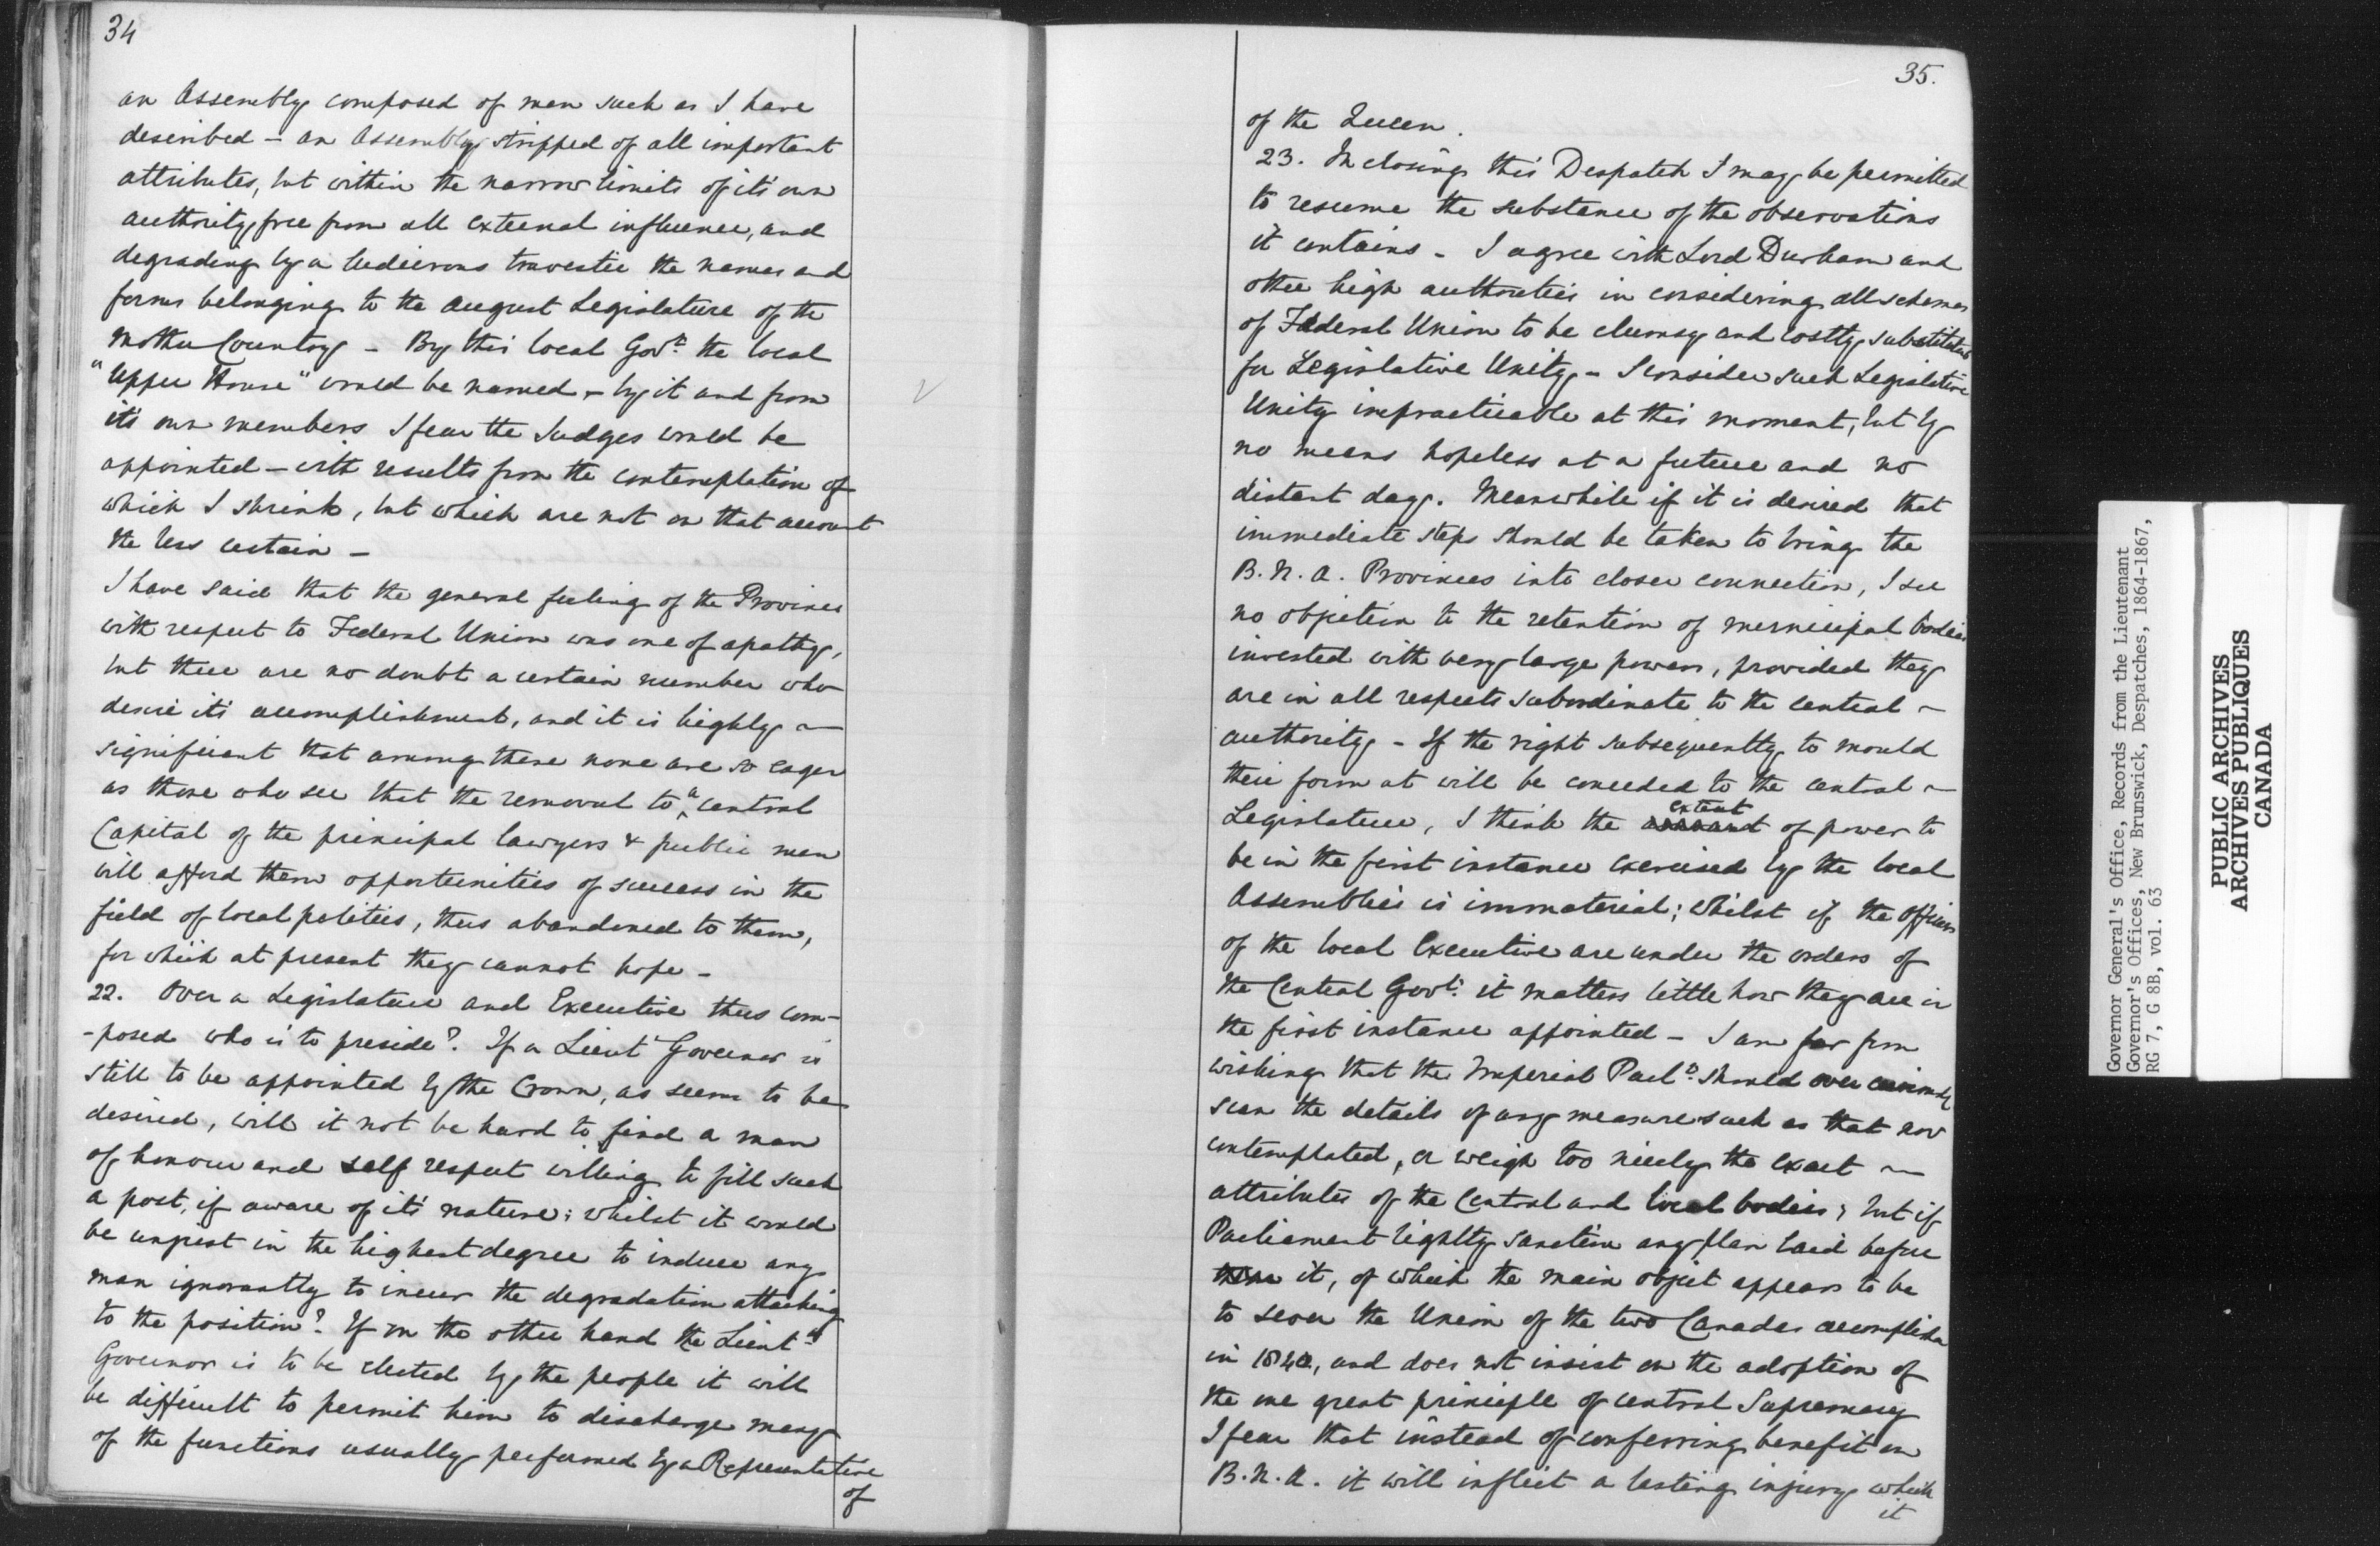 34
an Assembly composed of men such as I have
described – an Assembly stripped of all important
attributes, but within the narrow limits of its own
authority free from all external influence, and
degrading by a ludicrous travestie the names and
forms belonging to the august Legislature of the
Mother Country – By this local Govt. the local
"Upper House" would be named – by it and from
its own members I fear the Judges would be
appointed – with results from the contemplation of
which I shrink, but which are not on that account
the less certain –
I have said that the general feeling of the Province
with respect to Federal Union was one of apathy,
but there are no doubt a certain number who
desire its accomplishment, and it is highly –
significant that among these none are so eager
as those who see that the removal to a central
Capital of the principal lawyers & public men
will afford them opportunities of success in the
field of local politics, thus abandoned to them,
for which at present they cannot hope –
22. Over a Legislature and Executive thus com-
-posed who is to preside? If a Lieut Governor is
still to be appointed by the Crown, as seems to be
desired, will it not be hard to find a man
of honour and self respect willing to fill such
a post, if aware of its nature; whilst it would
be unjust in the highest degree to induce any
man ignorantly to incur the degradation attaching
to the position? If on the other hand the Lieutt
Governor is to be elected by the people it will
be difficult to permit him to discharge many
of the functions usually performed by a Representative
of
35.
of the Queen.
23. In closing this Despatch I may be permitted
to resume the substance of the observations
it contains – I agree with Lord Durham and
other high authorities in considering all schemes
of Federal Union to be clumsy and costly substitutes
for Legislative Unity – I consider such Legislative
Unity impracticable at this moment, but by
no means hopeless at a future and no
distant day. Meanwhile if it is desired that
immediate steps should be taken to bring the
B. N. A. Provinces into closer connection, I see
no objection to the retention of municipal bodies
invested with very large powers, provided they
are in all respects subordinate to the central –
authority – If the right subsequently to mould
their form at will be conceded to the central –
Legislature, I think the extent of power to
be in the first instance exercised by the local
Assemblies is immaterial; whilst if the Officers
of the local Executive are under the orders of
the Central Govt. it matters little how they are in
the first instance appointed – I am far from
wishing that the Imperial Parlt. should over curiously
scan the details of any measure such as that now
contemplated, or weigh too nicely the exact –
attributes of the Central and local bodies; but if
Parliament lightly sanction any plan laid before
it, of which the main object appears to be
to sever the Union of the two Canadas accomplished
in 1840, and does not insist on the adoption of
the one great principle of central Supremacy
I fear that instead of conferring benefit on
B. N. A. it will inflict a lasting injury which
it
Governor General's Office, Records from the Lieutenant
Governor's Offices, New Brunswick, Despatches, 1864-1867,
RG 7, G 8B, vol. 63
PUBLIC ARCHIVES
ARCHIVES PUBLIQUES
CANADA